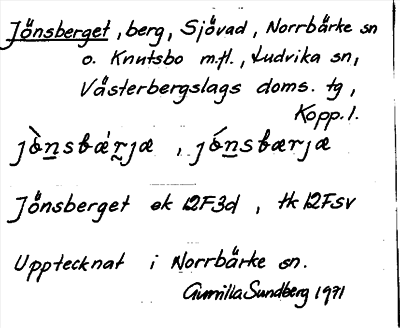 Jönsberget, berg, Sjövad, Norrbärke sn
o. Knutsbo m.fl., Ludvika sn,
Västerbergslags doms. tg,
Kopp. l.
jò̀nsbæ̀rjæ, jónsbærjæ
Jönsberget ek 12F3d, tk 12Fsv
Upptecknat i Norrbärke sn.
Gunilla Sundberg 1971